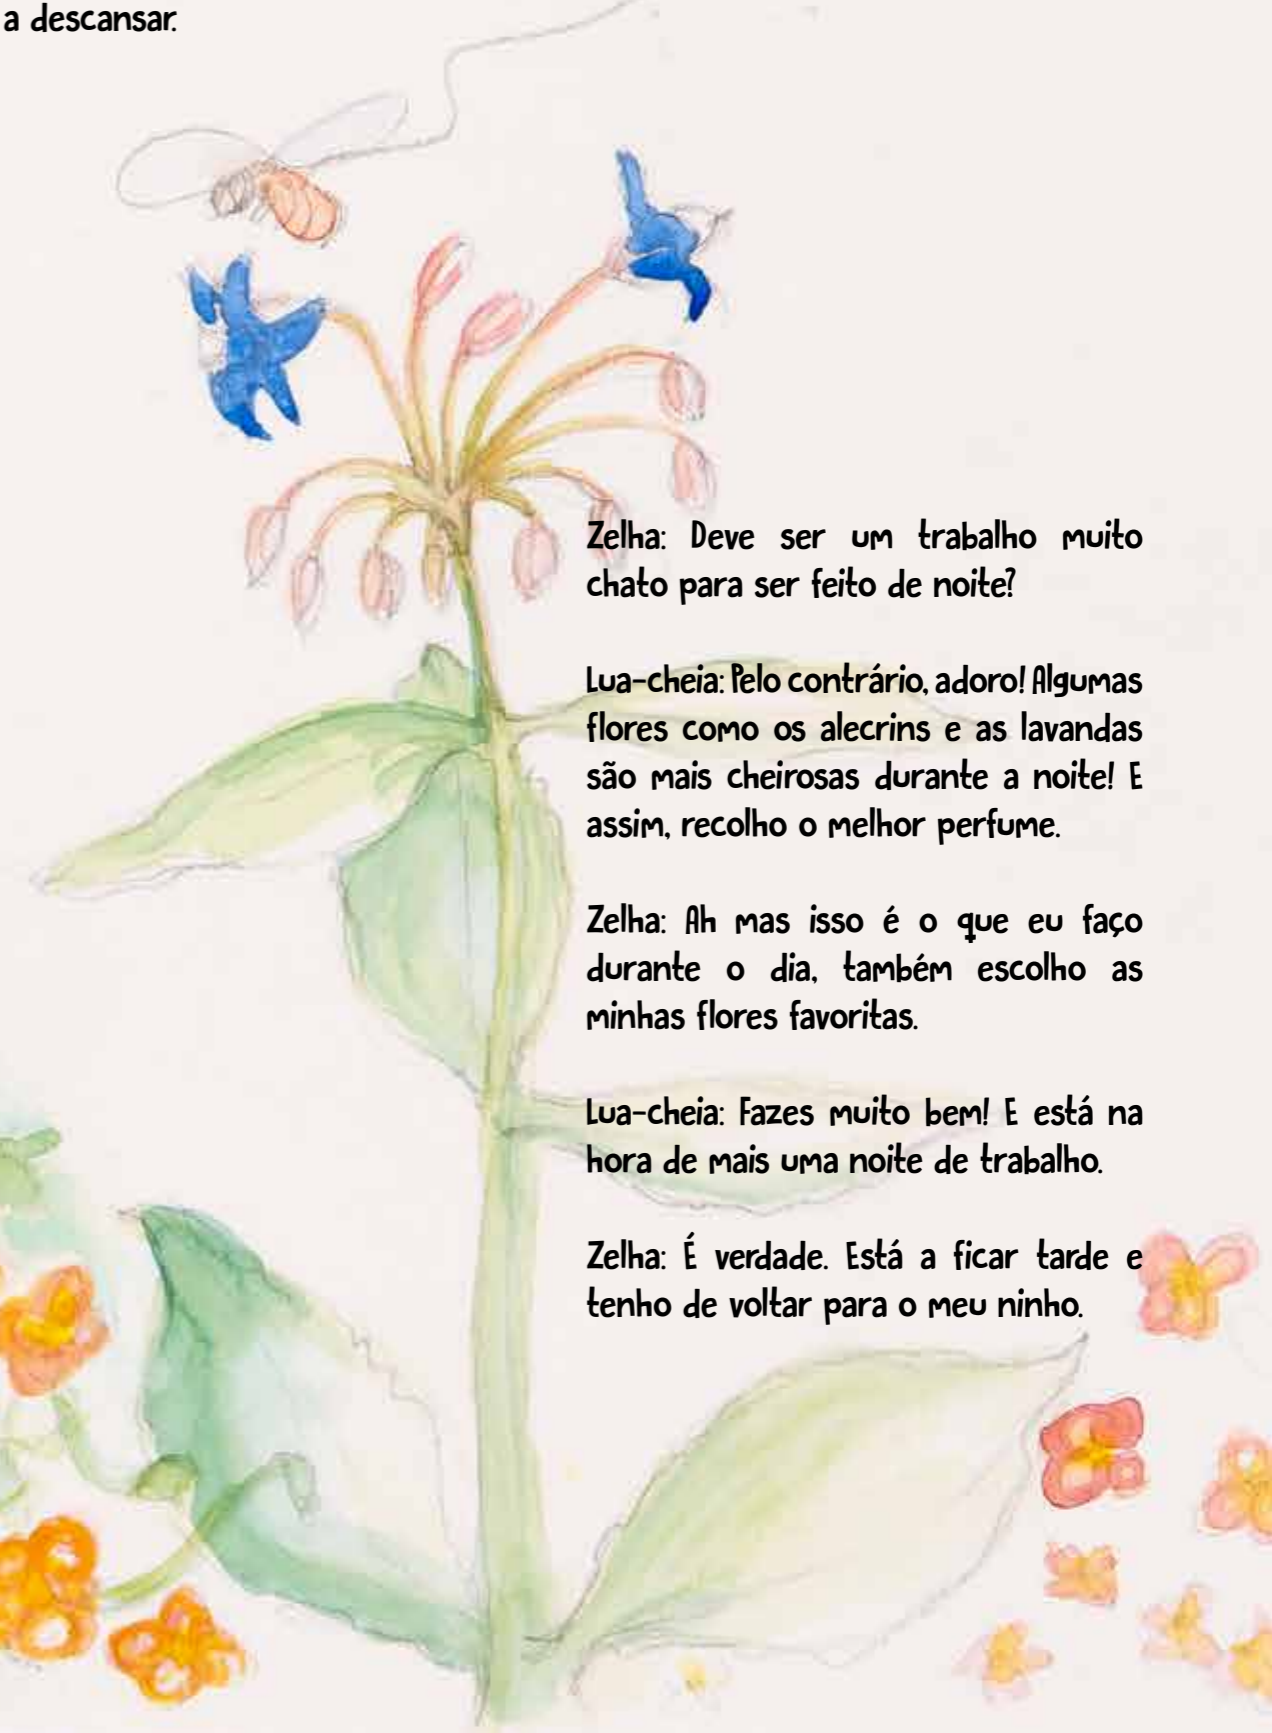 a descansar.
Zelha: Deve ser um trabalho muito
chato para ser feito de noite?
Lua-cheia: Pelo contrário, adoro! Algumas
flores como os alecrins e as lavandas
são mais cheirosas durante a noite! E
assim, recolho o melhor perfume.
Zelha: Ah mas isso é o que eu faço
durante o dia, também escolho as
minhas flores favoritas.
Lua-cheia: Fazes muito bem! E está na
hora de mais uma noite de trabalho.
Zelha: É verdade. Está a ficar tarde e
tenho de voltar para o meu ninho.